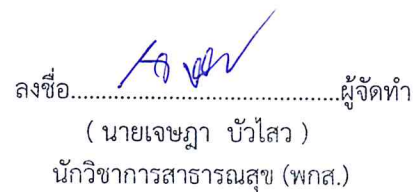 ลงชื่อ........................................ผู้จัดทำ
( นายเจษฎา บัวไสว )
นักวิชาการสาธารณสุข (พกส.)